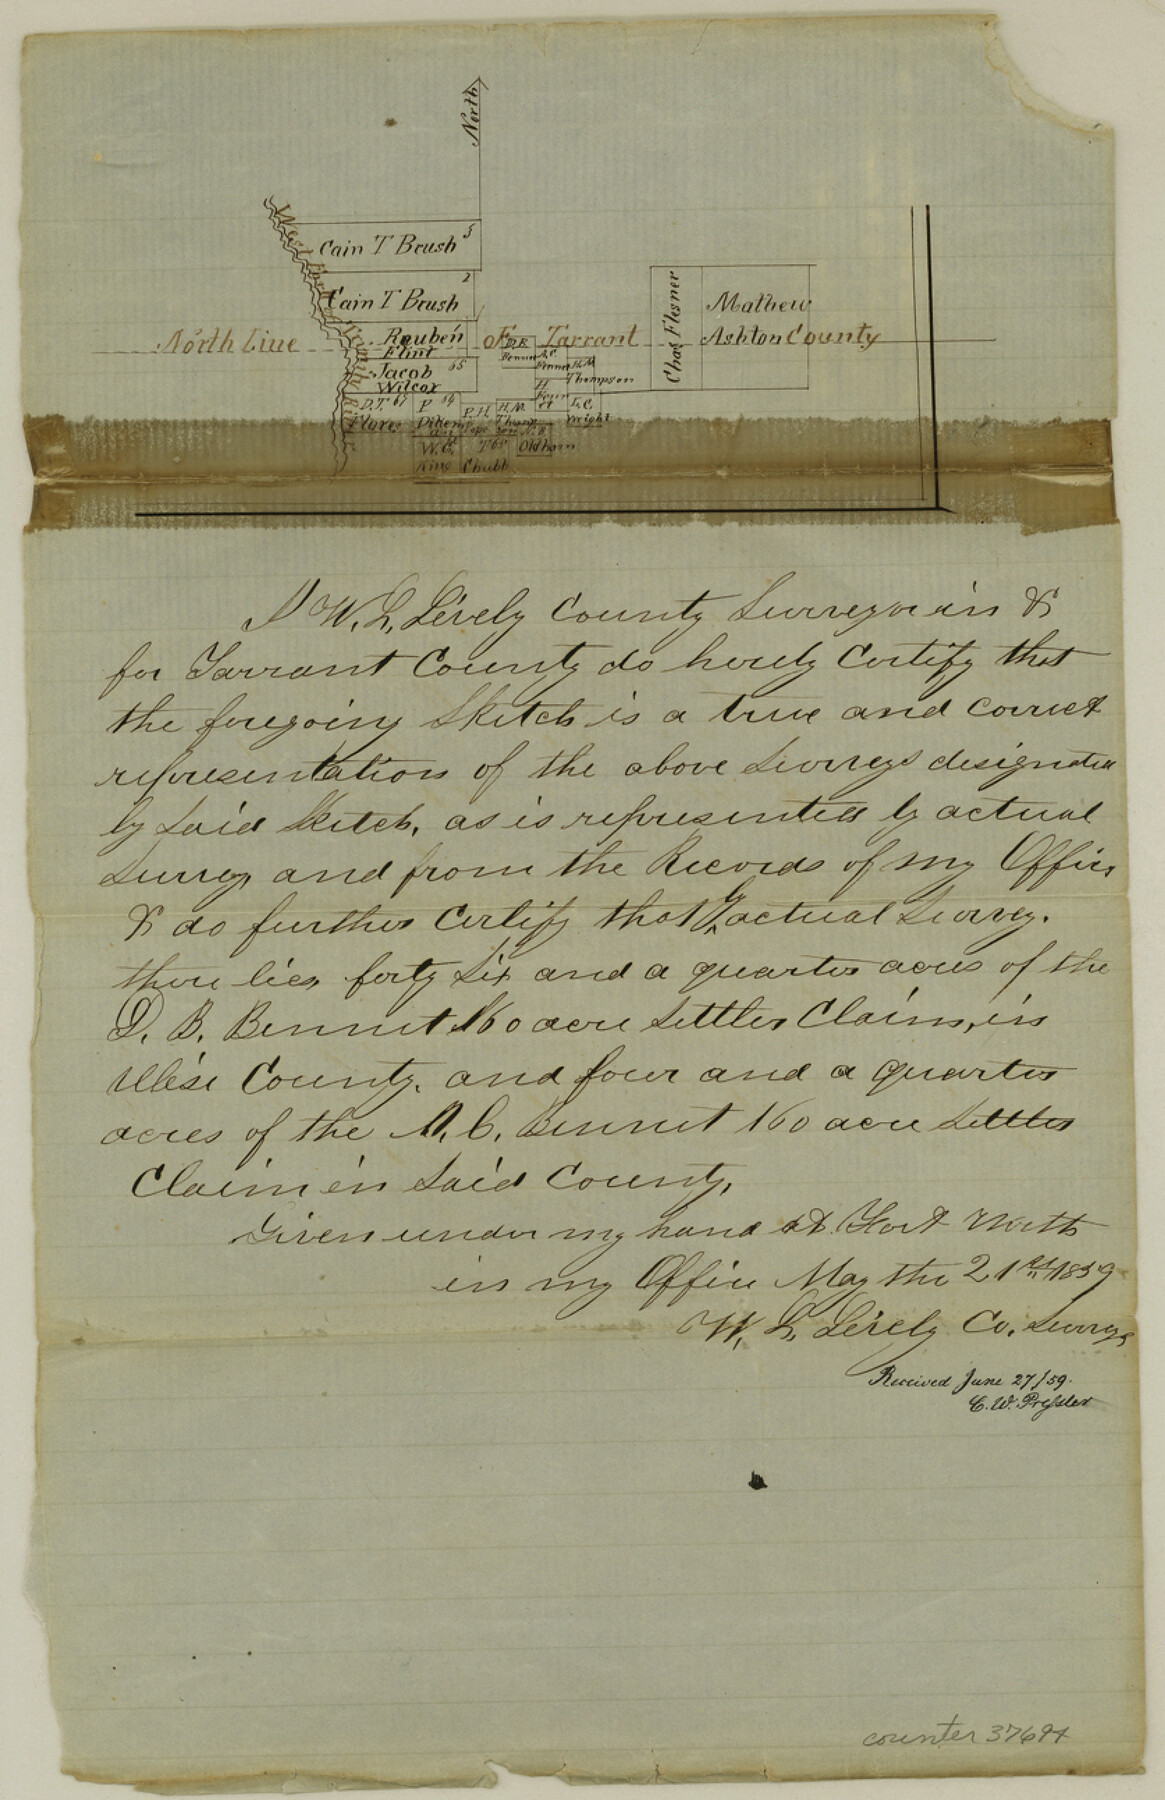 North
West Fork Trinity River
Cain T Brush 3
Cain T Brush 2
North Line Of Tarrant County
Reuben
Flint
Jacob 65
Wilcox
D.T. 67
Flores
P 64
W.C.
King
T 65
Chubb
P. H.
H. M.
Oldham
D.B.
A.C.
H. M.
Thompson
H
L. C.
Wright
Chas Flesner
Mathew
Ashton
I W. L. Lévely County Surveyor in &
for Tarrant County do hereby Certify that
the foregoing Sketch is a true and correct
representation of the above Surveys designated
by Said Sketch, as is represented by actual
Survey and from the Records of my Office
& do further Certify that by actual Survey.
there lies forty Six and a quarter acres of the
D. B. Bennet 160 acre Settlers Claim, in
Wise County, and four and a quarter
acres of the A. C. Bennet 160 acre Settlers
Claim in Said County,
Given under my hand at Fort Worth
in my Office May the 21st 1859
W. L. Lévely Co. Surveyr
Received June 27/59.
C. W. Pressler
counter 37694